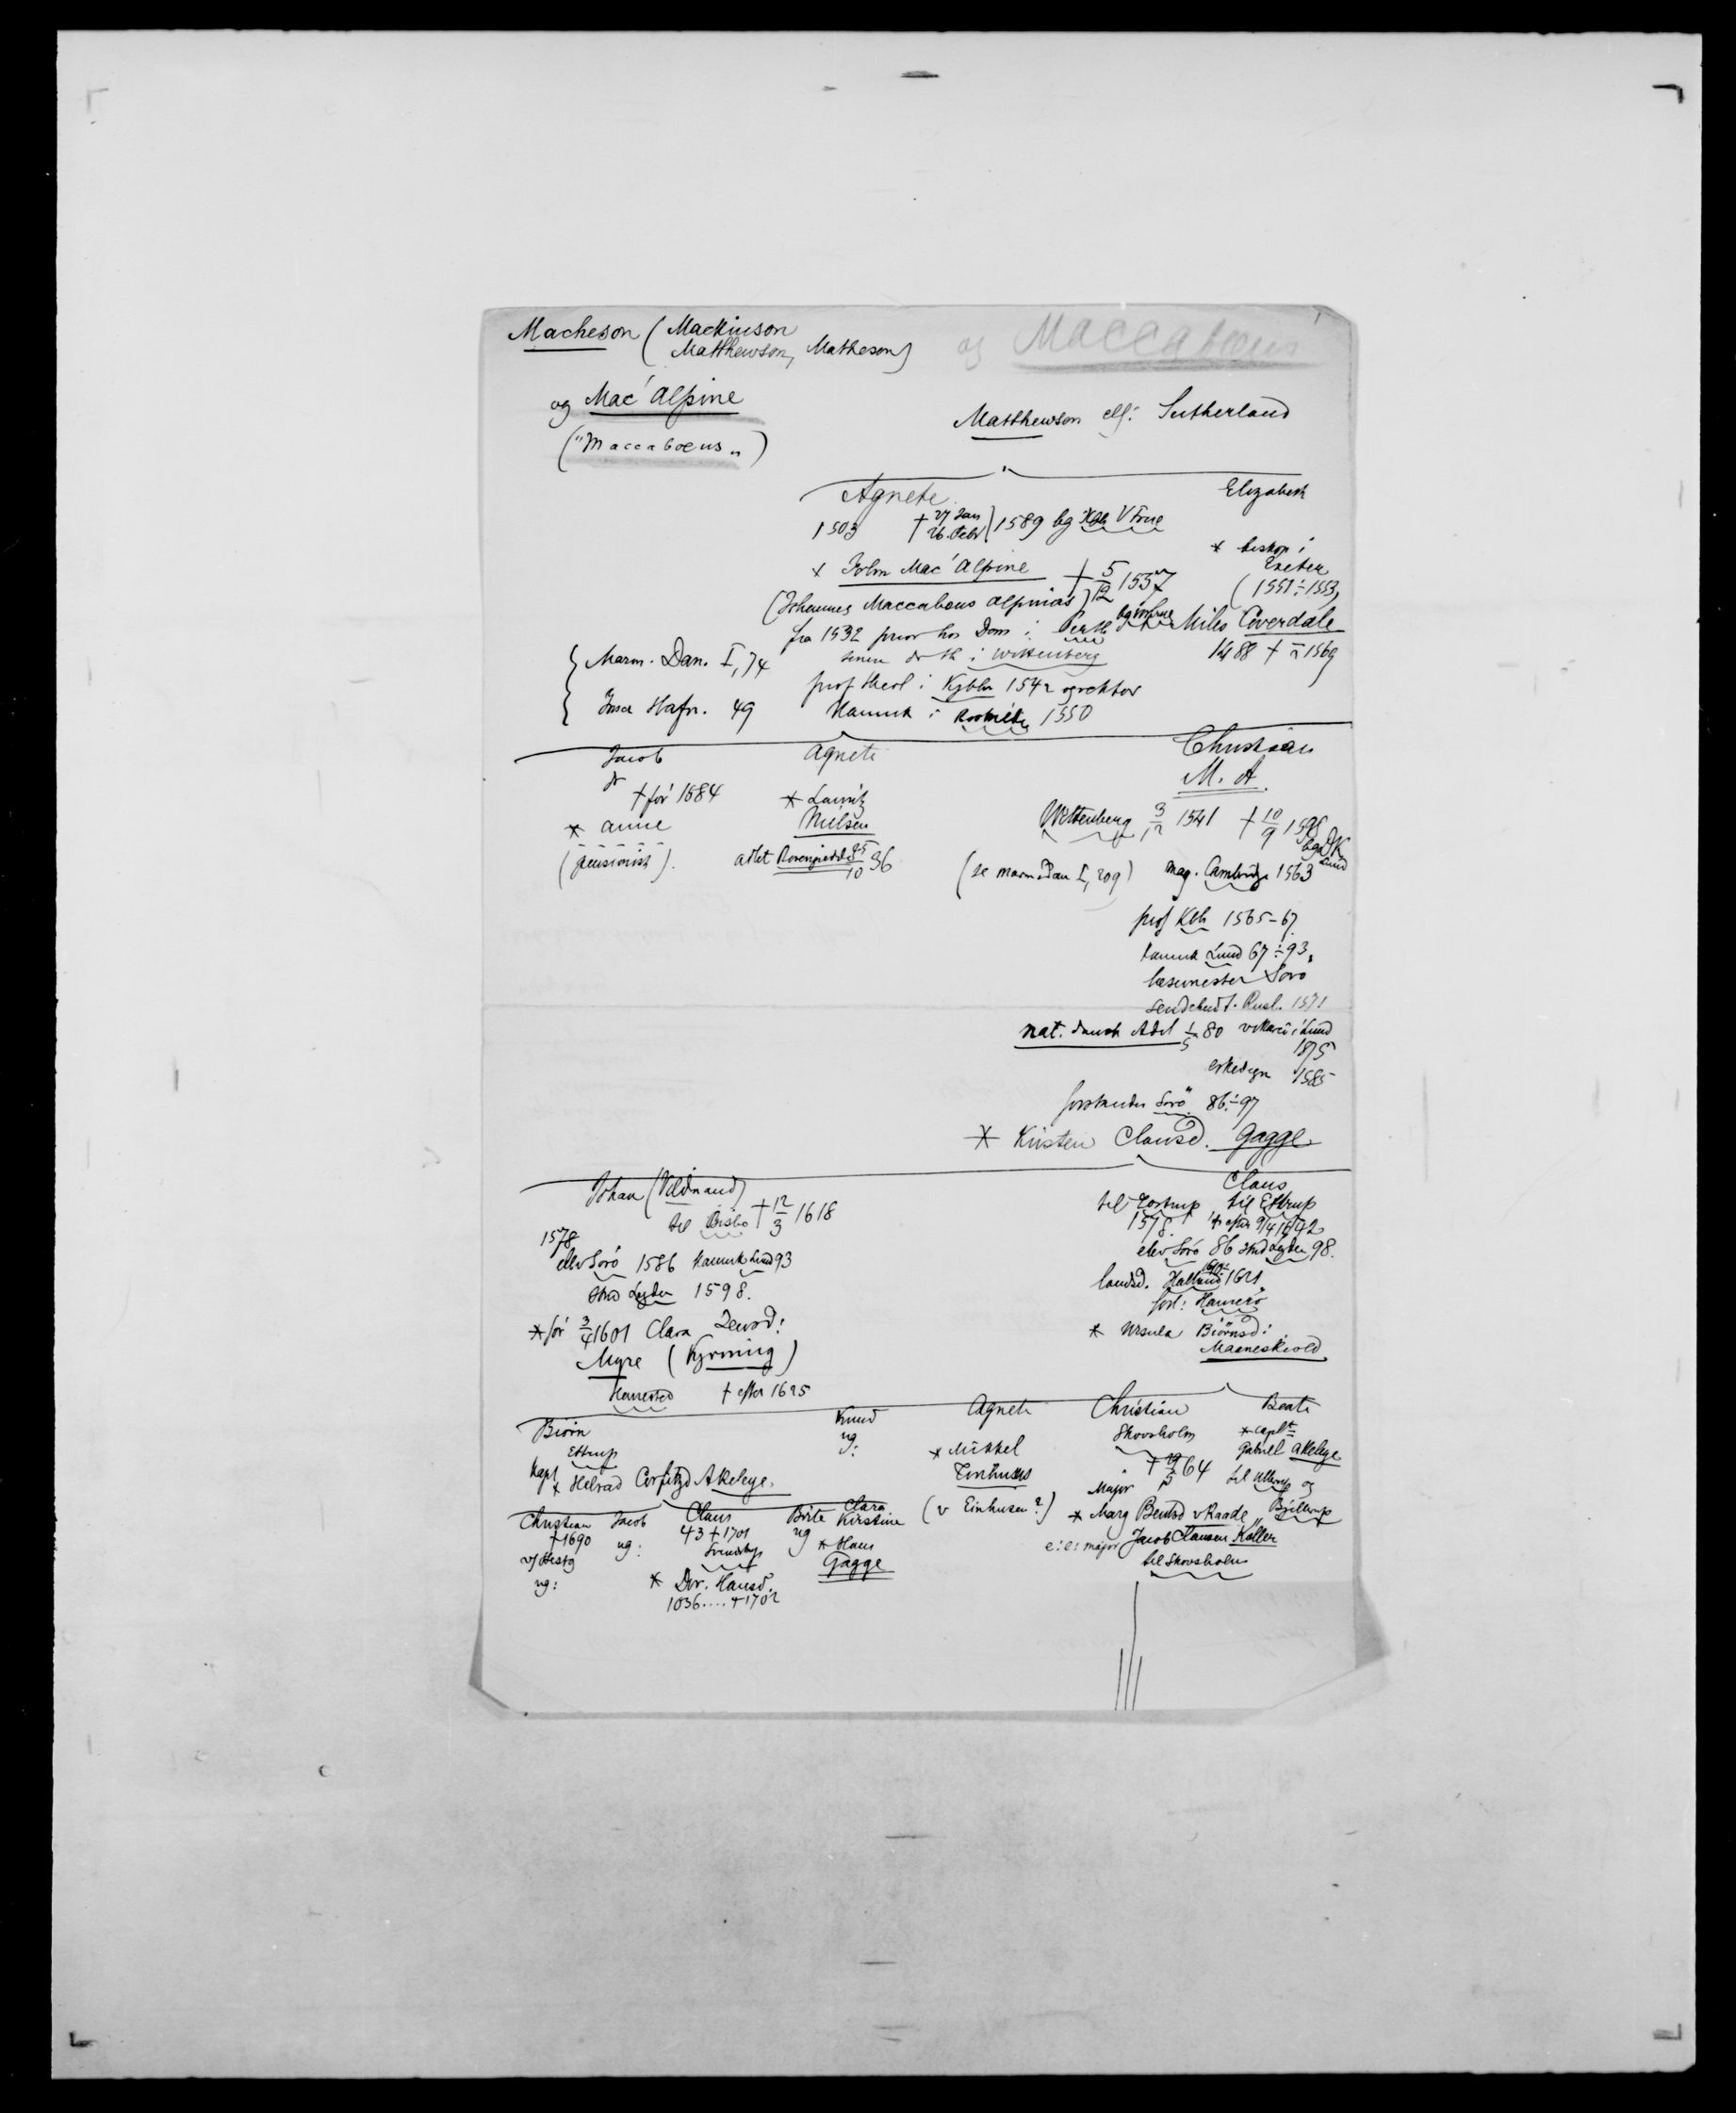 Macheson (Mackinson
Matthewson, Matheson)
og Maccaboeus
og Mac'Alpine
("Maccaboeus„)
Matthewson ell: Sutherland
Agnete
1503 † 27 Jan 26. Febr 1589 bg Kbh V Frue
Elizabeth
× John Mac'Alpine † 5/12 1557
(Johannes Maccabeus Alpinas)
fra 1532 prior hos Dom i Perth
senere dr th i Wittenberg
prof theol i Kjbhn 1542 og rektor
Kannik i Roskilde 1550
* biskop i
Exeter
(1551÷1553)
Miles Coverdale
1488 † 1569
Marm. Dan. I, 74
Inscr Hafn. 49
Jacob
dr
† før 1584
* Anne
(pensionist).
Agnete
* Lauritz
Nielsen
adlet Rosengiedde 25/10 36
Christian
M. A.
Wittenberg 3/12 1541 † 10/9 1598
bg DK Lund
(se marm Dan I, 209) mag. Cambridge 1563
prof Kbh 1565-67.
kannik Lund 67÷93,
læsemester Sorø
sendebud t. Rusl. 1571
nat. dansk Adel 1/5 80 vikar i Lund
1575
erkedegn 1585
forstander Sorö 86÷97
* Kirsten Clausd. Gagge
Johan
til Bislo † 12/3 1618
1578
elev Sorö 1586 kannik Lund 93
stud Leyden 1598.
* før 3/4 1601 Clara
Myre (Kyrning)
† efter 1625
Claus
til Tostrup til Ettrup
1578. † efter 9/4 1642
elev Sorö 86 stud Leyden 98.
landsd. Halland 1621,
forl: Hamerö
* Ursula Biörnsd:
Maaneskiold
Biörn
Ettrup
Kapt
× Helvad Corfitzd Akeleye.
Knud
ug:
Agnete
* Mikkel
Einhusus
(v Einhusen?)
Christian
Skovsholm
Major † 29/5 64
* Marg Bentsd v Raade
e: e: major Jacob Hansen Koller
til Skovsholm
Beate
* capt
Gabriel Akeleye
til Ullerup og
Bjellerup
Christian
† 1690
ug:
Jacob
ug:
Claus
43 † 1701
* Dor. Hansd.
1636.... † 1702
Birte
ug
Clara
Kirstine
* Hans
Gagge